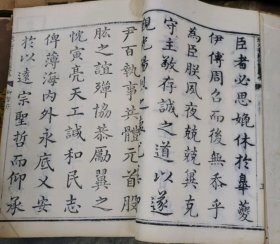 臣者必思媲休於皋夔
伊傅周召而後無忝乎
為臣朕夙夜兢兢冀克
守主敬存誠之道以遂
尹百執事共體元首股
肱之誼殫協恭勵翼之
忱寅亮天工諴和民志
俾薄海內外永底乂安
於以遠宗聖哲而仰承